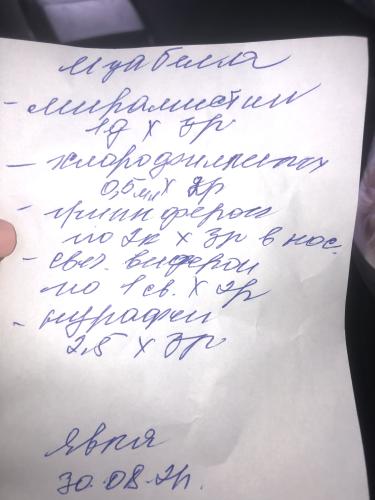 - мирамистин
1д х 3р
- хлорофиллипт
0,5мл х 2р
- гриппферон
по 2к х 3р в нос.
- свеч. виферон
по 1 св. х 2р
- нурофен
2,5 х 3р
явка
30.08.2